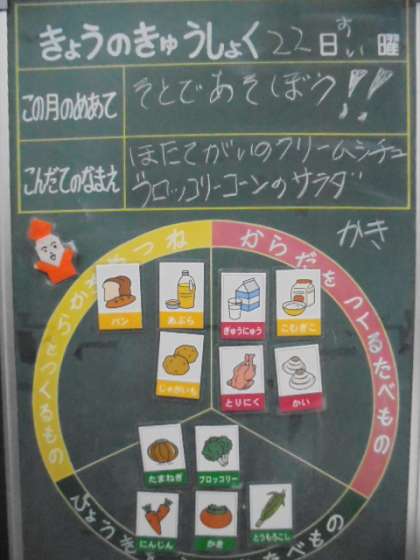 きょうのきゅうしょく 22日 すい 曜
この月のめあて そとであそぼう!!
こんだてのなまえ ほたてがいのクリームシチュ
ブロッコリーコーンのサラダ
かき
からだをつくるたべもの
パン
あぶら
ぎゅうにゅう
こむぎこ
じゃがいも
とりにく
かい
たまねぎ
ブロッコリー
にんじん
かき
とうもろこし